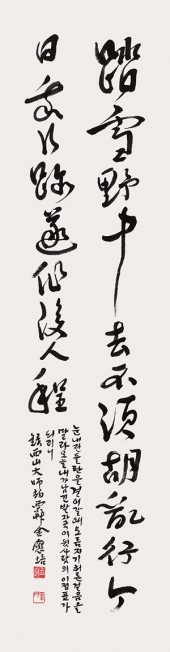 踏雪野中去不須胡亂行今
日我行跡遂作後人程
눈내린들판을걸어갈때모름지기허튼걸음을
말라오늘내가남긴발자국이뒷사람의이정표가
되리니
錄西山大師詩